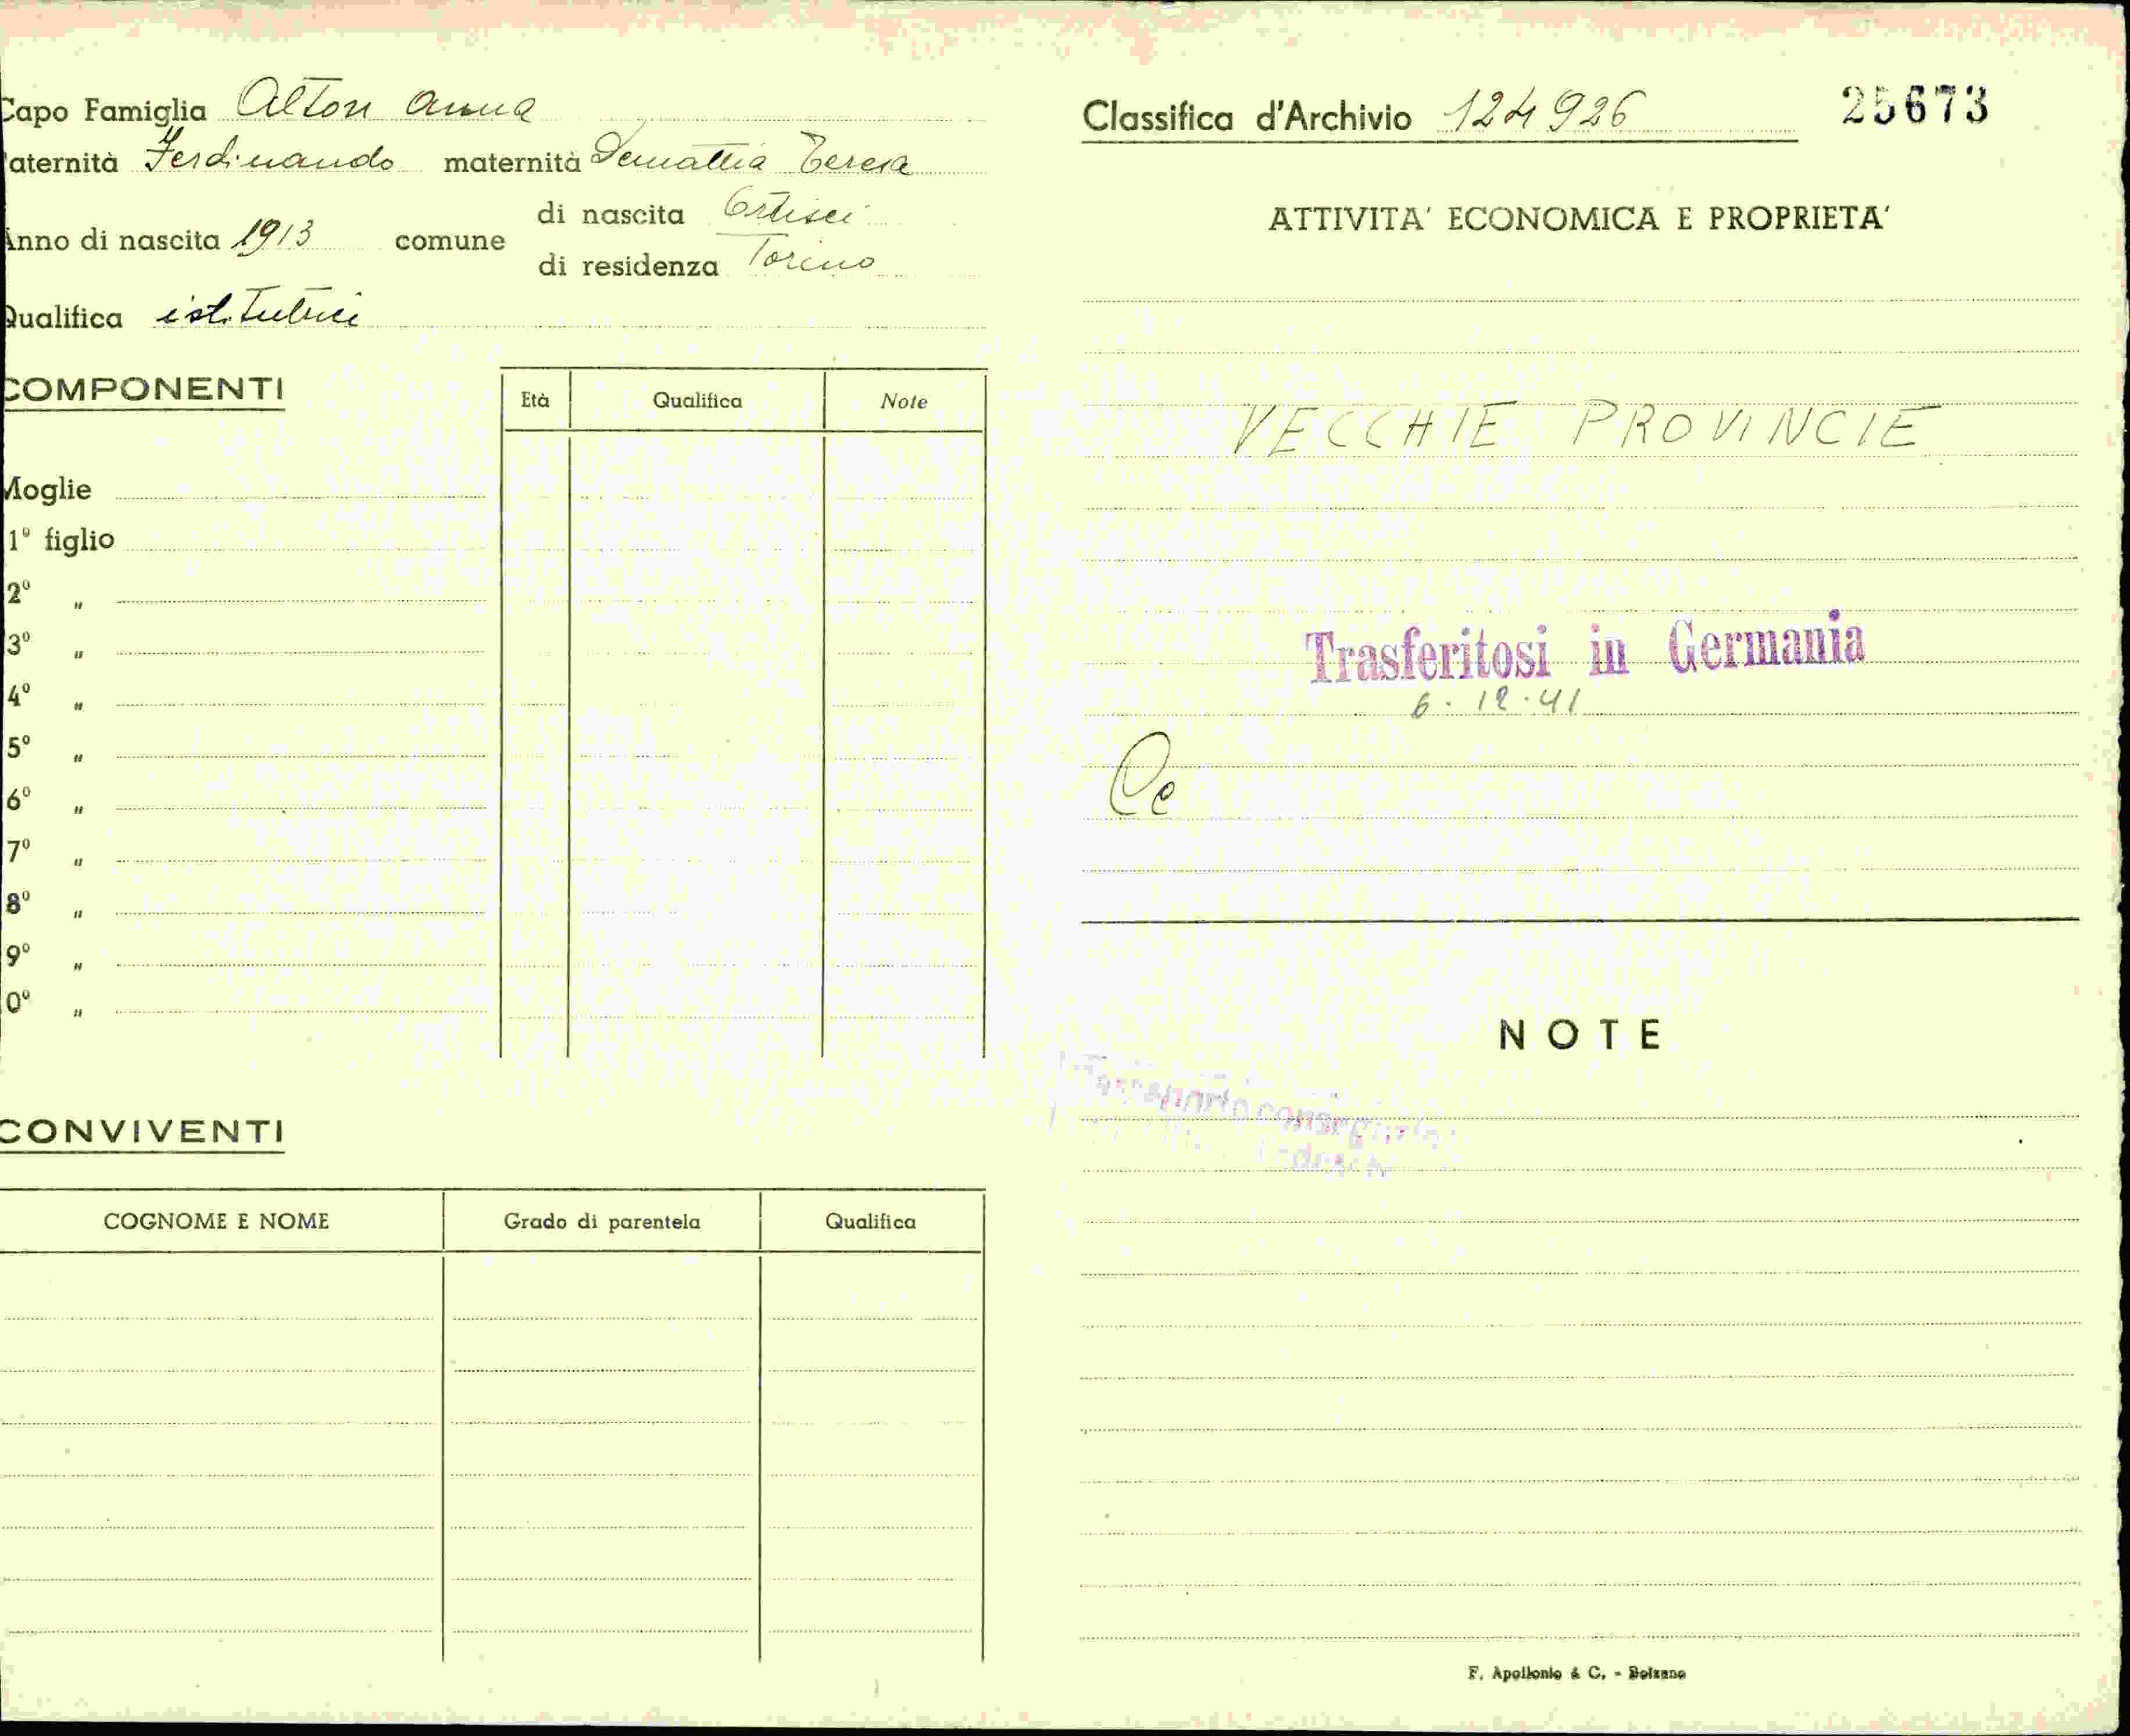 Capo Famiglia Alton Anna
aternità Ferdinando maternità Demattia Teresa
Anno di nascita 1913 comune
di nascita Ortisei
di residenza Torino
Qualifica istitutrice
COMPONENTI
Età Qualifica Note
Moglie
1º figlio
2º "
3º "
4º "
5º "
6º "
7º "
8º "
9º "
0º "
CONVIVENTI
COGNOME E NOME Grado di parentela Qualifica
Classifica d'Archivio 124926 25673
ATTIVITA' ECONOMICA E PROPRIETA'
VECCHIE PROVINCIE
Trasferitosi in Germania
6.12.41
NOTE
F. Apollonio & C. - Bolzano